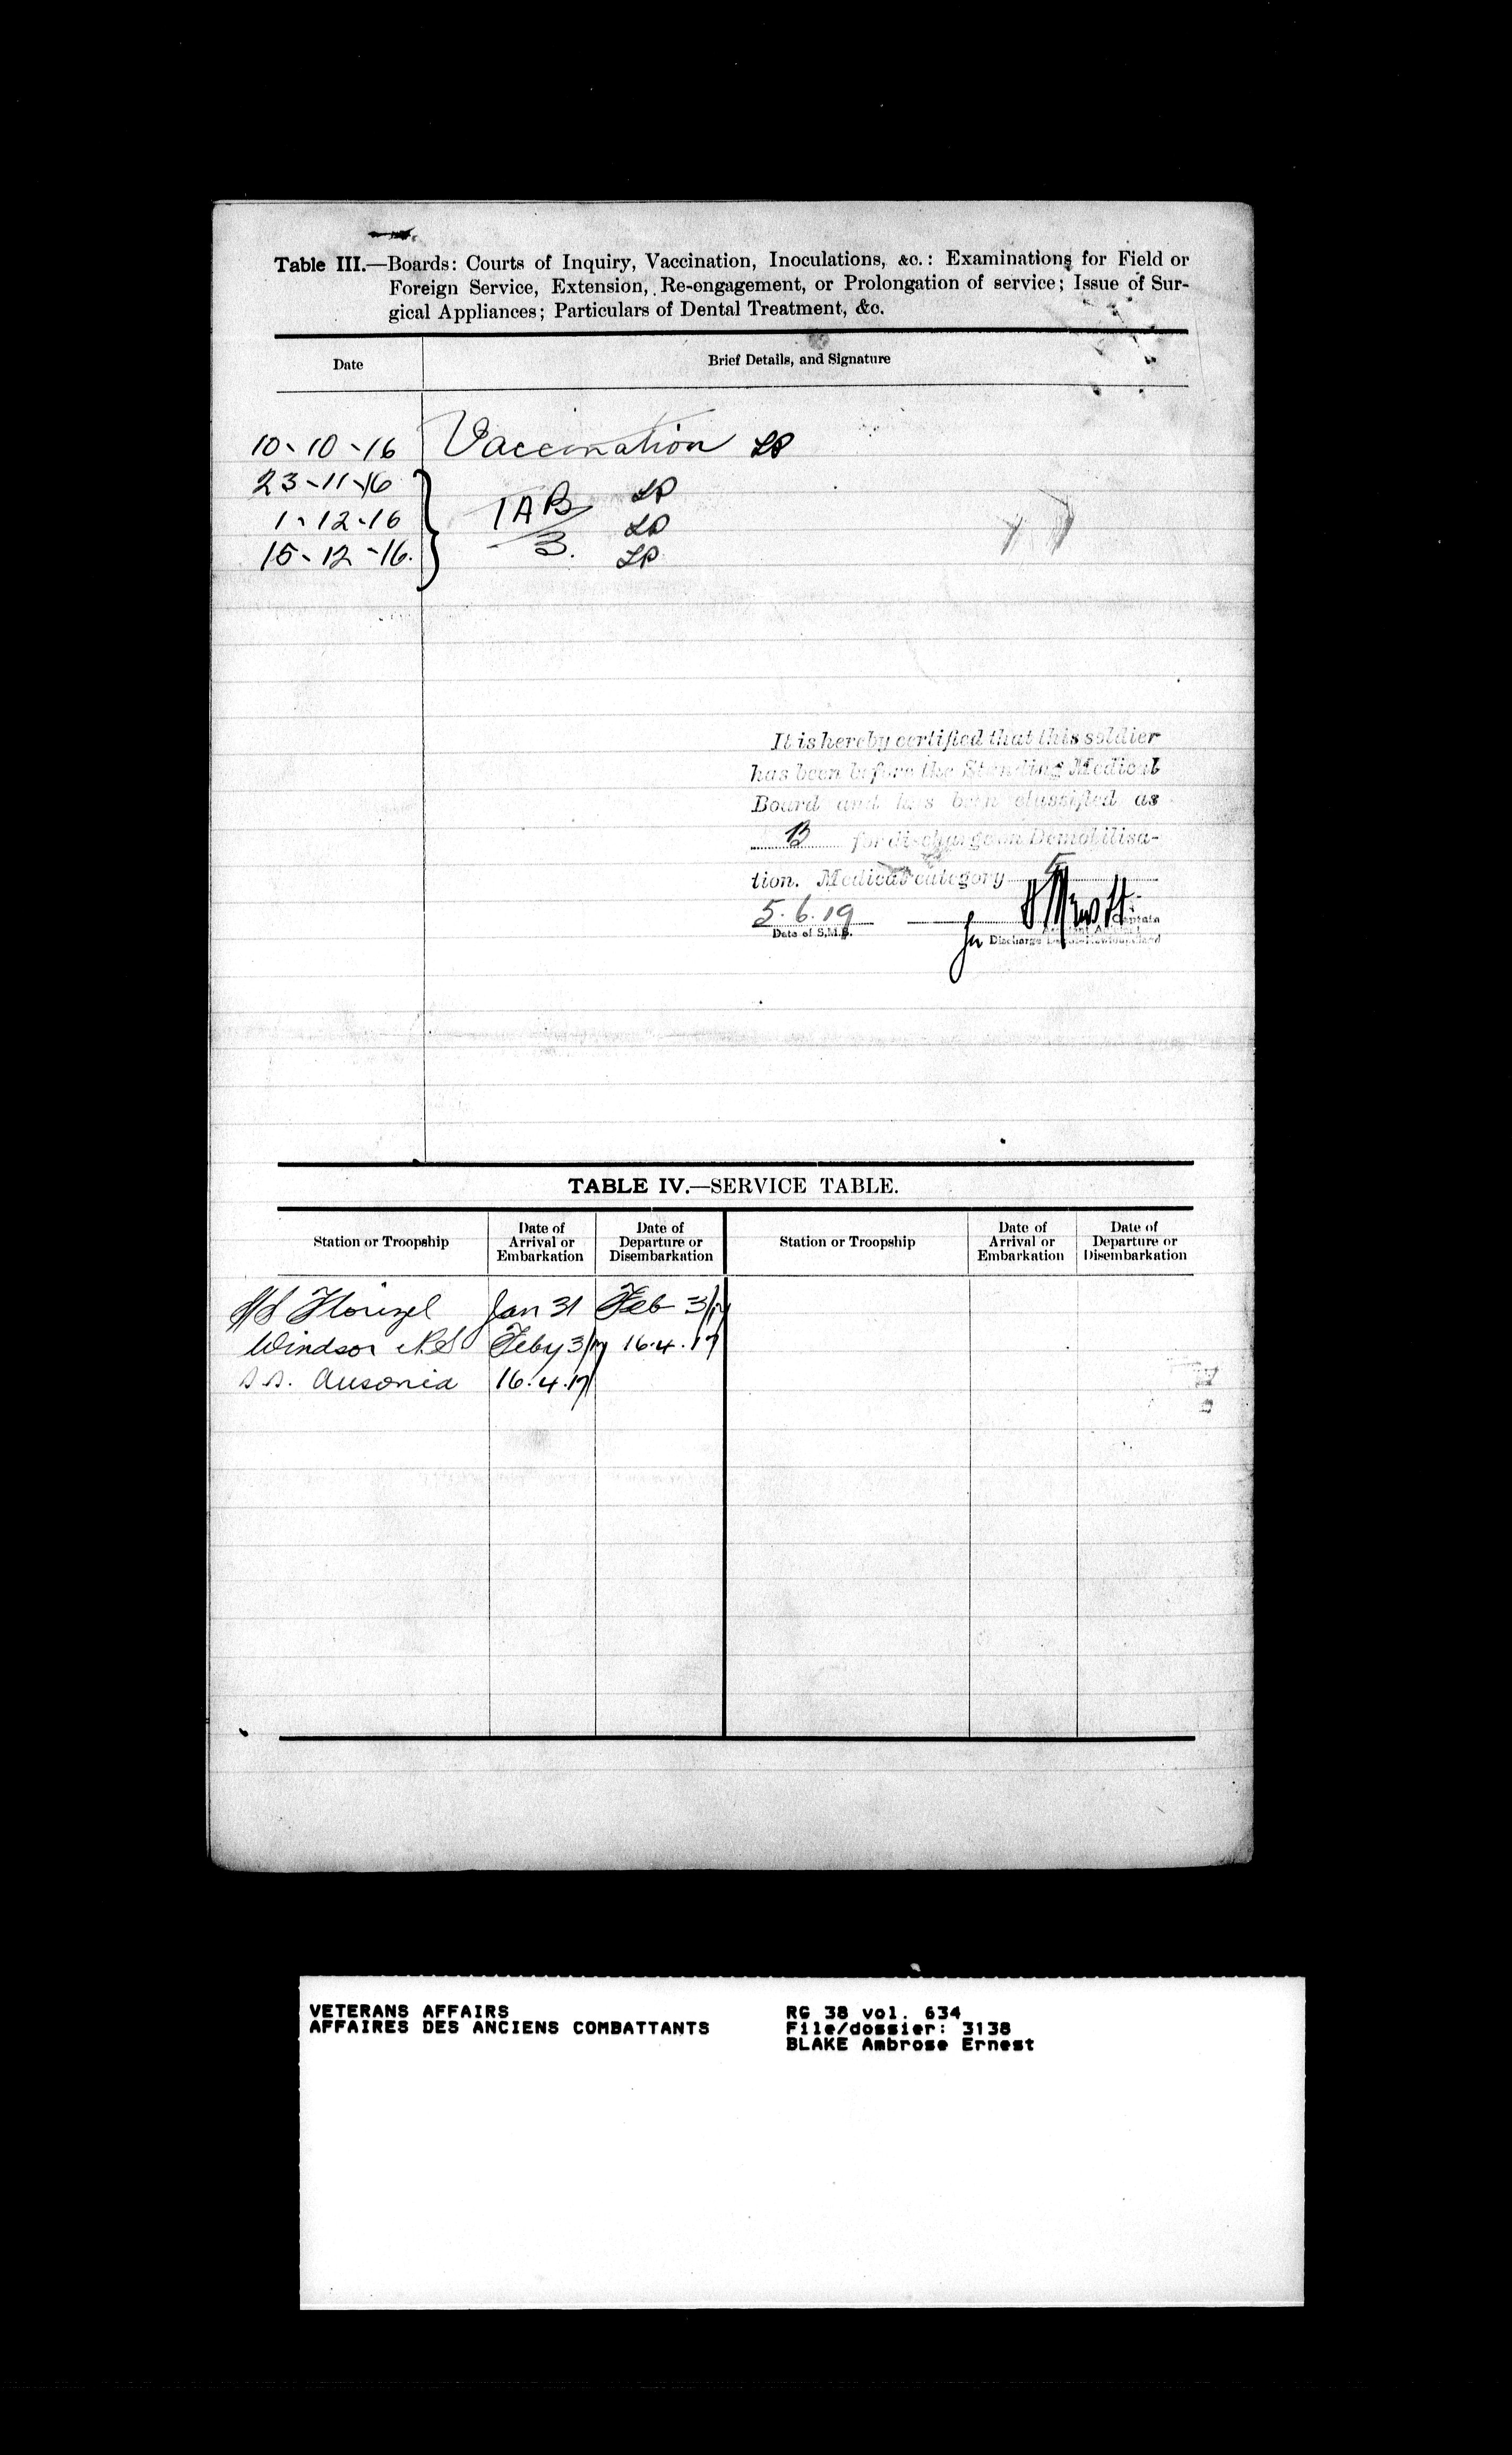 Table III.—Boards: Courts of Inquiry, Vaccination, Inoculations, &c.: Examinations for Field or
Foreign Service, Extension, Re-engagement, or Prolongation of service; Issue of Sur-
gical Appliances; Particulars of Dental Treatment, &c.
Date Brief Details, and Signature
10-10-16 Vaccination LP
23-11-16 LP
TAB
1-12-16 LP
3.
15-12-16. LP
It is hereby certified that this soldier
has been before the Standing Medical
Board and has been classified as
B for discharge on Demobilisa-
tion. Medical category
5.6.19
Captain
Date of S.M.B. for Discharge
TABLE IV.—SERVICE TABLE.
Station or Troopship Date of Arrival or Embarkation Date of Departure or Disembarkation Station or Troopship Date of Arrival or Embarkation Date of Departure or Disembarkation
S/S Florizel Jan 31 Feb 3/17
Windsor N.S Feby 3/17 16.4.17
S.S. Ausonia 16.4.17
VETERANS AFFAIRS RG 38 vol. 634
AFFAIRES DES ANCIENS COMBATTANTS File/dossier: 3138
BLAKE Ambrose Ernest